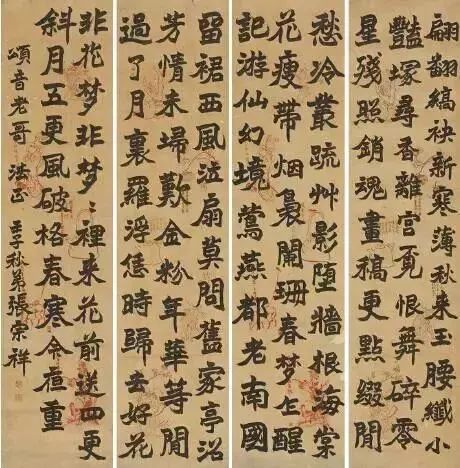 翩翻縞袂新寒薄秋来玉腰纖小
豔塚尋香離宮覓恨舞碎零
星殘照銷魂畫稿更點綴閒
愁冷叢疏艸影墮牆根海棠
花瘦帶烟裊闌珊春夢乍醒
記游仙幻境鶯燕都老南國
留裙西風泣扇莫問舊家亭沼
芳情未埽歎金粉年華等閒
過了月裏羅浮恁時歸去好花
非花梦非梦〻裡来花前送四更
斜月五更風破格春寒重
頌音老哥法正 壬子秋弟張宗祥